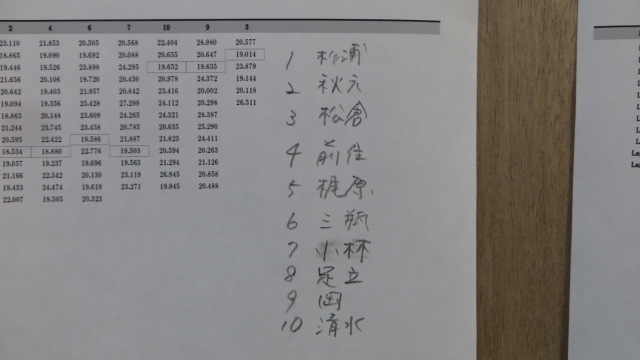 2 4 6 7 10 9 3
23.110 21.853 20.505 20.568 22.404 28.980 20.577
18.865 19.090 19.692 20.088 20.655 20.647 19.014
19.446 19.526 23.898 24.295 19.652 19.635 23.879
21.656 20.106 19.720 20.430 20.978 24.372 19.144
20.642 19.403 21.957 20.842 23.416 20.002 20.118
19.094 19.356 25.428 27.299 24.112 20.298 26.511
18.863 20.148 23.609 24.265 24.321 28.387
21.244 23.745 23.438 20.785 20.635 25.290
20.595 22.422 19.586 21.887 21.823 24.411
18.534 18.880 22.776 19.503 20.594 20.263
19.057 19.237 19.696 19.563 21.294 21.126
21.166 22.342 20.130 23.119 26.945 20.858
19.453 24.474 19.619 23.271 19.945 20.488
22.007 19.505 20.323
1 杉浦
2 秋元
3 松倉
4 前住
5 梶原
6 三瓶
7 小林
8 足立
9 岡
10 清水